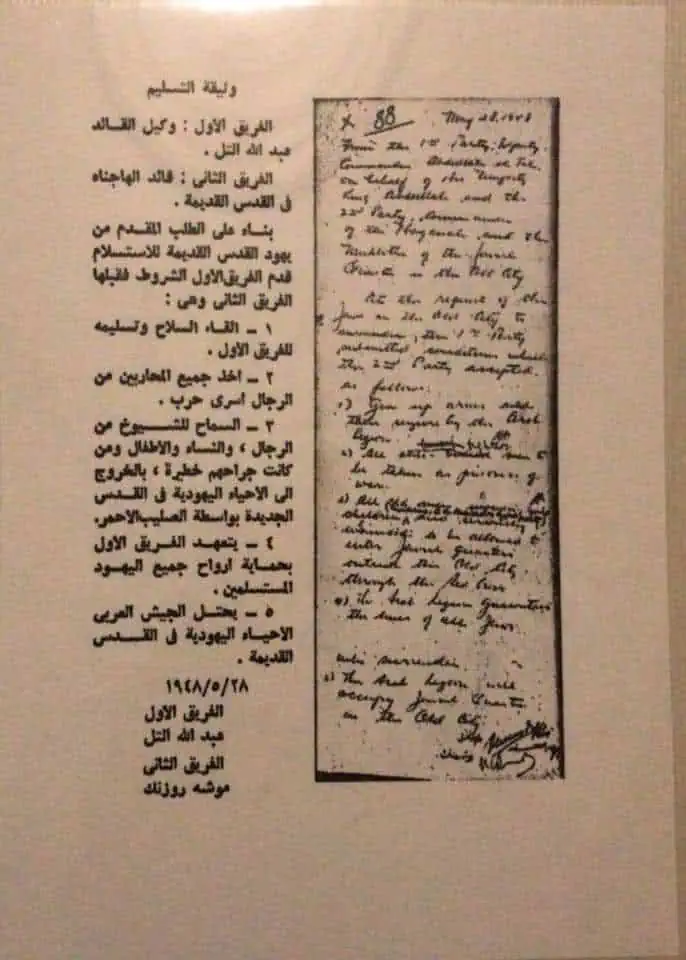 وثيقة التسليم
الفريق الاول : وكيل القائد
عبد الله التل .
الفريق الثانى : قائد الهاجناه
فى القدس القديمة .
بناء على الطلب المقدم من
يهود القدس القديمة للاستسلام
قدم الفريق الاول الشروط فقبلها
الفريق الثانى وهى :
١ ــ القاء السلاح وتسليمه
للفريق الاول .
٢ ــ اخذ جميع المحاربين من
الرجال اسرى حرب .
٣ ــ السماح للشيوخ من
الرجال ، والنساء والاطفال ومن
كانت جراحهم خطيرة ، بالخروج
الى الاحياء اليهودية فى القدس
الجديدة بواسطة الصليب الاحمر.
٤ ــ يتعهد الفريق الاول
بحماية ارواح جميع اليهود
المستسلمين .
٥ ــ يحتل الجيش العربى
الاحياء اليهودية فى القدس
القديمة .
١٩٤٨/٥/٢٨
الفريق الاول
عبد الله التل
الفريق الثانى
موشه روزنك
88
May 28. 1948
From the 1st Party: Deputy
Commander Abdullah el Tel
on behalf of His Majesty
King Abdullah and the
2nd Party, Commander
of the Haganah and the
Mukhtar of the Jewish
Quarter in the Old City
At the request of the
Jews in the Old City to
surrender, the 1st Party
submitted conditions which
the 2nd Party accepted.
as follows.
1) Give up arms and
their seizure by the Arab
Legion.
2) All men to
be taken as prisoners of
war.
3) All
children, and seriously
wounded to be allowed to
enter Jewish quarters
outside the Old City
through the Red Cross
4) The Arab Legion guarantees
the lives of all Jews
who surrender.
5) The Arab Legion will
occupy Jewish Quarter
in the Old City